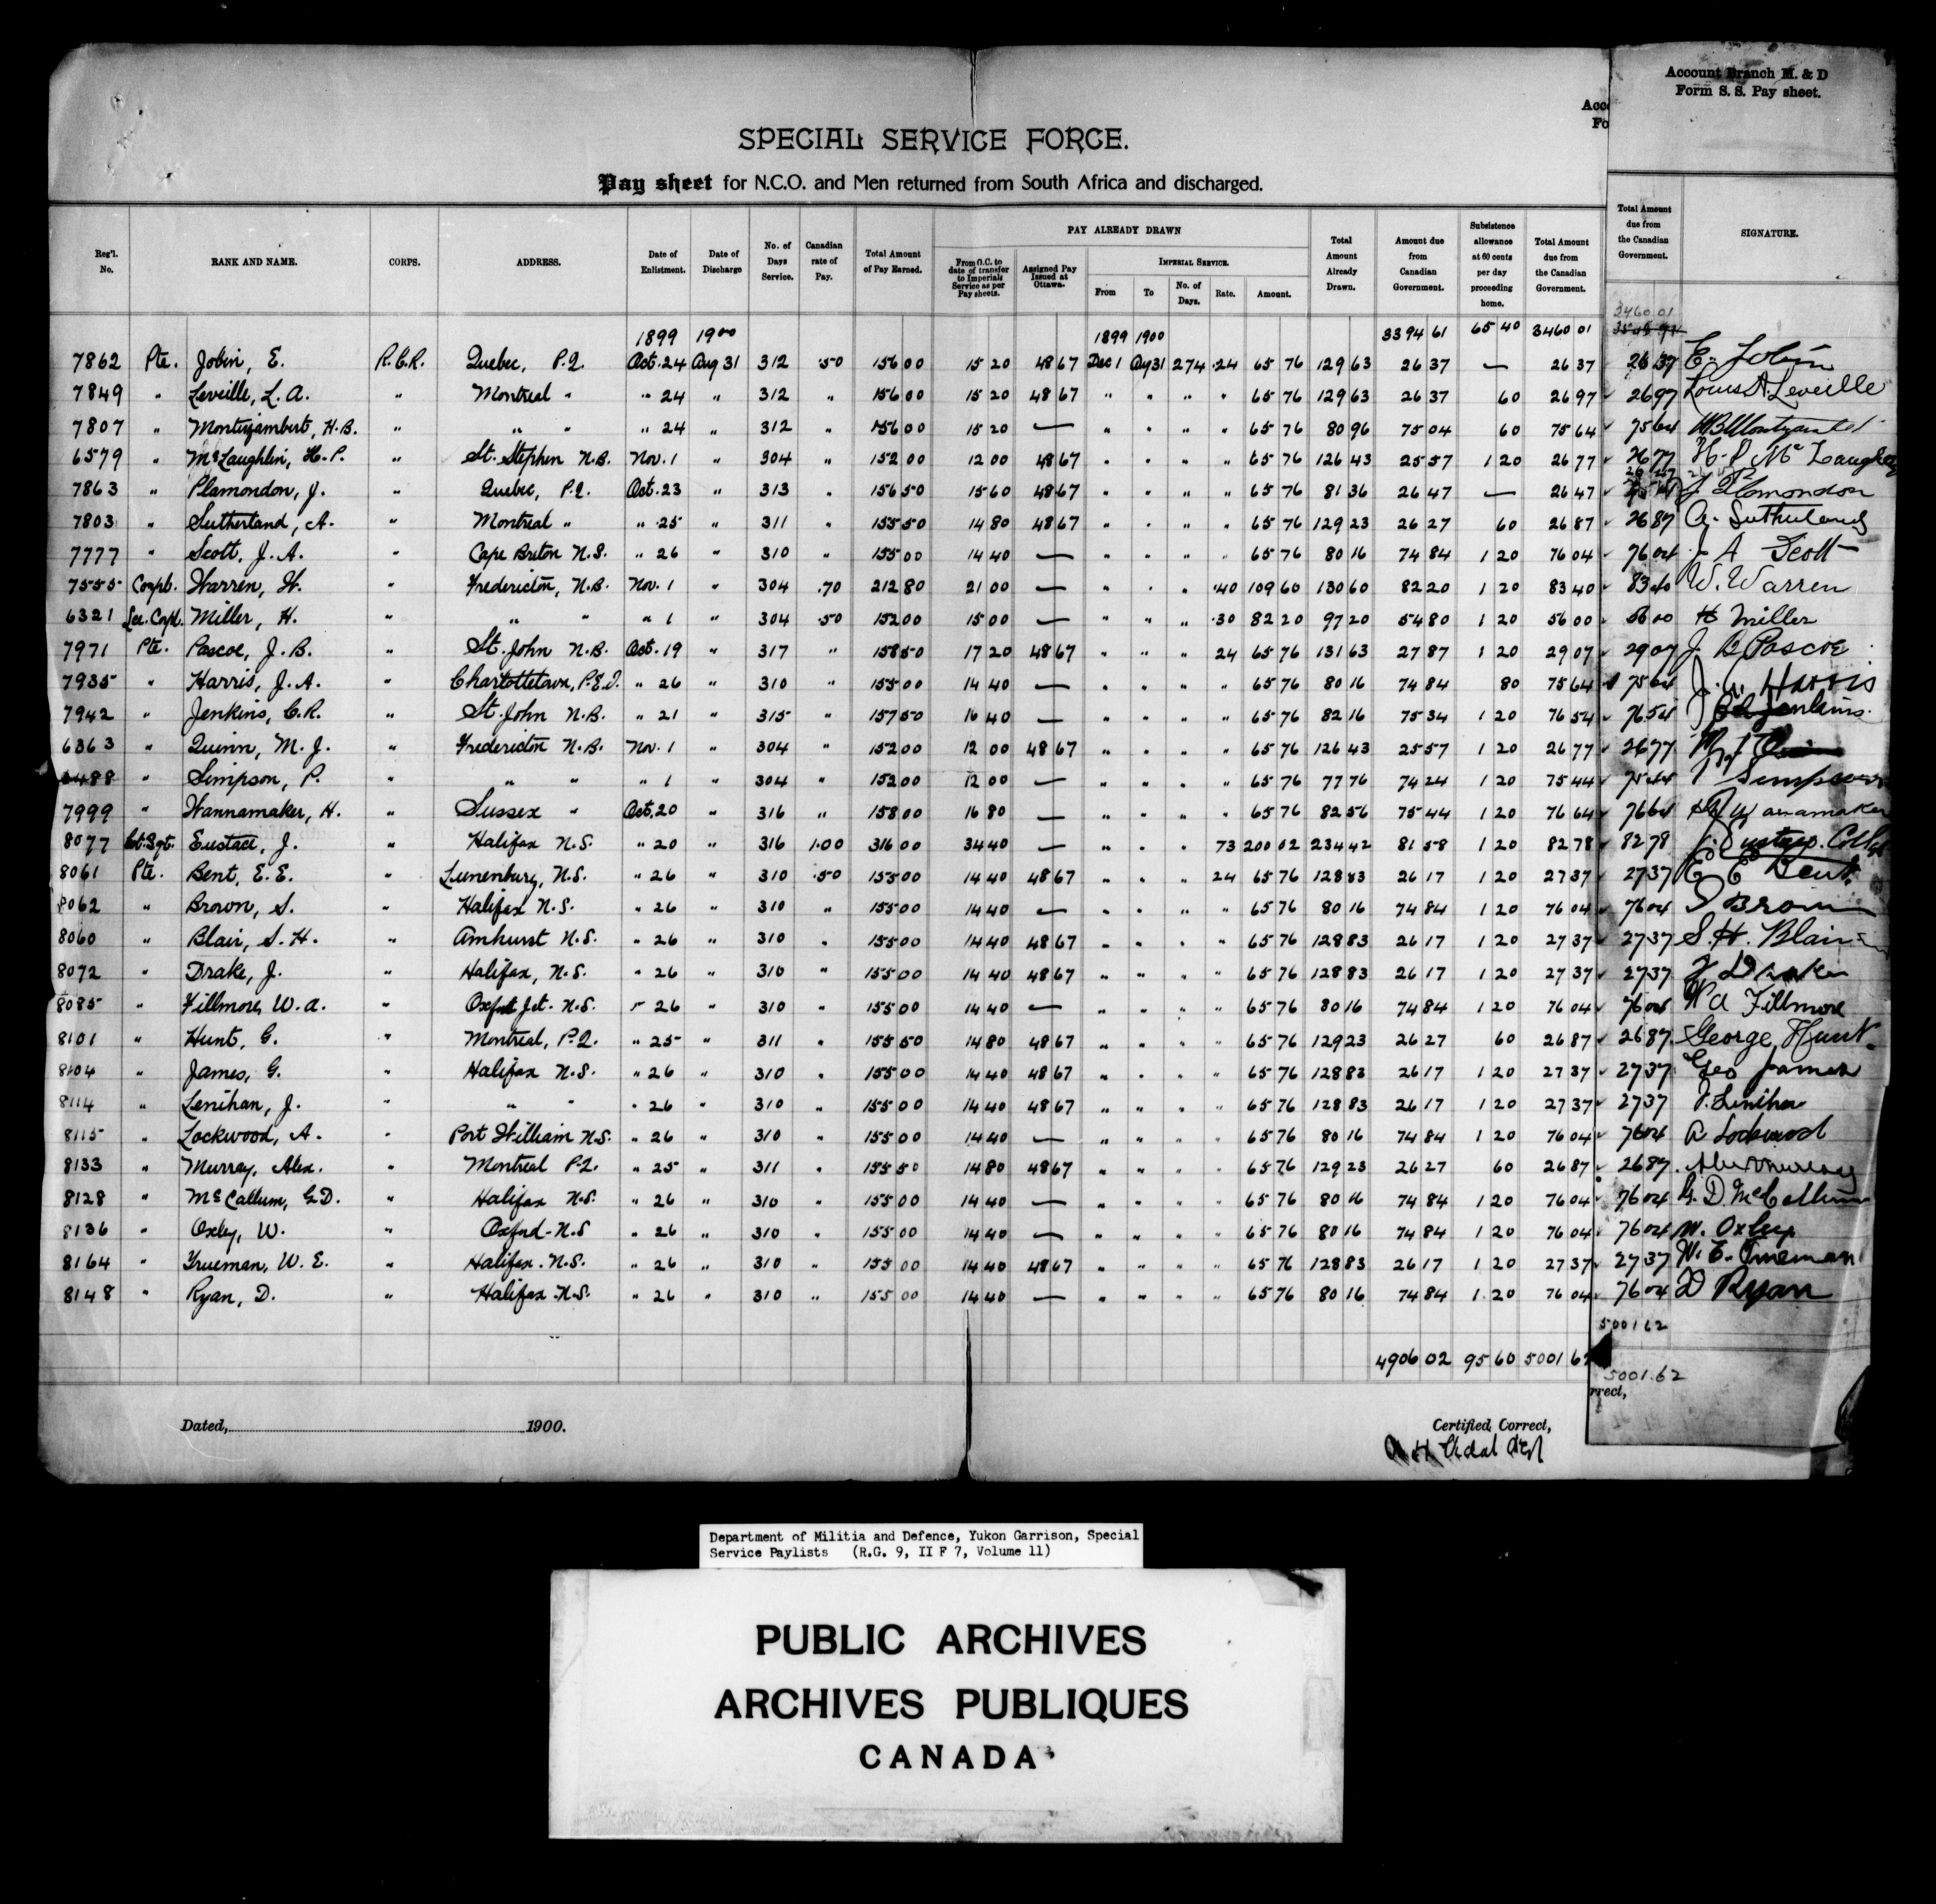 Account Branch M. & D
Form S. S. Pay sheet.
Acco
Fo
SPECIAL SERVICE FORCE.
Pay sheet for N.C.O. and Men returned from South Africa and discharged.
Reg'l. No. RANK AND NAME. CORPS. ADDRESS. Date of Enlistment. Date of Discharge No. of Days Service. Canadian rate of Pay. Total Amount of Pay Earned. PAY ALREADY DRAWN From O.C. to date of transfer to Imperial Service as per Pay sheets. Assigned Pay Issued at Ottawa. IMPERIAL SERVICE. From To No. of Days. Rate. Amount. Total Amount Already Drawn. Amount due from Canadian Government. Subsistence allowance at 60 cents per day proceeding home. Total Amount due from the Canadian Government. Total Amount due from the Canadian Government. SIGNATURE.
1899 1900 1899 1900 3394 61 65 40 3460 01 3460 01
7862 Pte. Jobin, E. R.C.R. Quebec, P.Q. Oct. 24 Aug 31 312 .50 156 00 15 20 48 67 Dec 1 Ag 31 274 .24 65 76 129 63 26 37 — 26 37 26 37 E. Jobin
7849 " Leveille, L. A. " Montreal " " 24 " 312 " 156 00 15 20 48 67 " " " " 65 76 129 63 26 37 60 26 97 26 97 Louis A. Leveille
7807 " Montizambert, H.B. " " " " 24 " 312 " 156 00 15 20 — " " " " 65 76 80 96 75 04 60 75 64 75 64
6579 " McLaughlin, H.P. " St. Stephen N.B. Nov. 1 " 304 " 152 00 12 00 48 67 " " " " 65 76 126 43 25 57 1 20 26 77 26 77 H. P. Mc
7863 " Plamondon, J. " Quebec, P.Q. Oct. 23 " 313 " 156 50 15 60 48 67 " " " " 65 76 81 36 26 47 — 26 47 26 47 J Plamondon
7803 " Sutherland, A. " Montreal " " 25 " 311 " 155 50 14 80 48 67 " " " " 65 76 129 23 26 27 60 26 87 26 87 A. Sutherland
7777 " Scott, J. A. " Cape Breton N.S. " 26 " 310 " 155 00 14 40 — " " " " 65 76 80 16 74 84 1 20 76 04 76 04 J A Scott
7555 Corpl. Warren, W. " Fredericton, N.B. Nov. 1 " 304 .70 212 80 21 00 — " " " .40 109 60 130 60 82 20 1 20 83 40 83 40 W. Warren
6321 Lce. Corpl. Miller, H. " " " " 1 " 304 .50 152 00 15 00 — " " " .30 82 20 97 20 54 80 1 20 56 00 56 00 H Miller
7971 Pte. Pascoe, J. B. " St. John N.B. Oct. 19 " 317 " 158 50 17 20 48 67 " " " 24 65 76 131 63 27 87 1 20 29 07 29 07 J B Pascoe
7935 " Harris, J. A. " Charlottetown, P.E.I. " 26 " 310 " 155 00 14 40 — " " " " 65 76 80 16 74 84 80 75 64 75 64 J. A. Harris
7942 " Jenkins, C.R. " St. John N.B. " 21 " 315 " 157 50 16 40 — " " " " 65 76 82 16 75 34 1 20 76 54 76 54 Jenkins
6363 " Quinn, M. J. " Fredericton N.B. Nov. 1 " 304 " 152 00 12 00 48 67 " " " " 65 76 126 43 25 57 1 20 26 77 26 77
6488 " Simpson, P. " " " " 1 " 304 " 152 00 12 00 — " " " " 65 76 77 76 74 24 1 20 75 44 75 44 P Simpson
7999 " Wannamaker, H. " Sussex " Oct. 20 " 316 " 158 00 16 80 — " " " " 65 76 82 56 75 44 1 20 76 64 76 64 Wanamaker
8077 Eustace, J. " Halifax N.S. " 20 " 316 1.00 316 00 34 40 — " " " 73 200 02 234 42 81 58 1 20 82 78 82 78 J. Eustace
8061 Pte. Bent, E. E. " Lunenburg, N.S. " 26 " 310 .50 155 00 14 40 48 67 " " " 24 65 76 128 83 26 17 1 20 27 37 27 37 E E Bent
8062 " Brown, S. " Halifax N.S. " 26 " 310 " 155 00 14 40 — " " " " 65 76 80 16 74 84 1 20 76 04 76 04 S Brown
8060 " Blair, S. H. " Amhurst N.S. " 26 " 310 " 155 00 14 40 48 67 " " " " 65 76 128 83 26 17 1 20 27 37 27 37 S. H. Blair
8072 " Drake, J. " Halifax, N.S. " 26 " 310 " 155 00 14 40 48 67 " " " " 65 76 128 83 26 17 1 20 27 37 27 37 J Drake
8085 " Fillmore, W. A. " Oxford Jct. N.S. " 26 " 310 " 155 00 14 40 — " " " " 65 76 80 16 74 84 1 20 76 04 76 04 W A Fillmore
8101 " Hunt, G. " Montreal, P.Q. " 25 " 311 " 155 50 14 80 48 67 " " " " 65 76 129 23 26 27 60 26 87 26 87 George Hunt
8104 " James, G. " Halifax N.S. " 26 " 310 " 155 00 14 40 48 67 " " " " 65 76 128 83 26 17 1 20 27 37 27 37 Geo James
8114 " Lenihan, J. " " " " 26 " 310 " 155 00 14 40 48 67 " " " " 65 76 128 83 26 17 1 20 27 37 27 37 J. Lenihan
8115 " Lockwood, A. " Port William N.S. " 26 " 310 " 155 00 14 40 — " " " " 65 76 80 16 74 84 1 20 76 04 76 04 A Lockwood
8133 " Murray, Alex. " Montreal P.Q. " 25 " 311 " 155 50 14 80 48 67 " " " " 65 76 129 23 26 27 60 26 87 26 87 Alex Murray
8128 " McCallum, G.D. " Halifax N.S. " 26 " 310 " 155 00 14 40 — " " " " 65 76 80 16 74 84 1 20 76 04 76 04 G. D. McCallum
8136 " Oxley, W. " Oxford N.S " 26 " 310 " 155 00 14 40 — " " " " 65 76 80 16 74 84 1 20 76 04 76 04 W. Oxley
8164 " Trueman, W. E. " Halifax. N.S. " 26 " 310 " 155 00 14 40 48 67 " " " " 65 76 128 83 26 17 1 20 27 37 27 37 W. E. Trueman
8148 " Ryan, D. " Halifax N.S. " 26 " 310 " 155 00 14 40 — " " " " 65 76 80 16 74 84 1 20 76 04 76 04 D Ryan
5001 62
4906 02 95 60 5001 62
5001.62
rrect,
Dated, 1900.
Certified Correct,
Department of Militia and Defence, Yukon Garrison, Special
Service Paylists (R.G. 9, II F 7, Volume 11)
PUBLIC ARCHIVES
ARCHIVES PUBLIQUES
CANADA